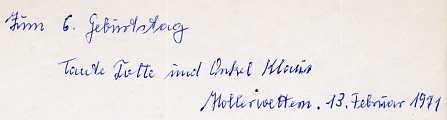 Zum 6. Geburtstag
Tante Totte und Onkel Klaus
13. Februar 1971